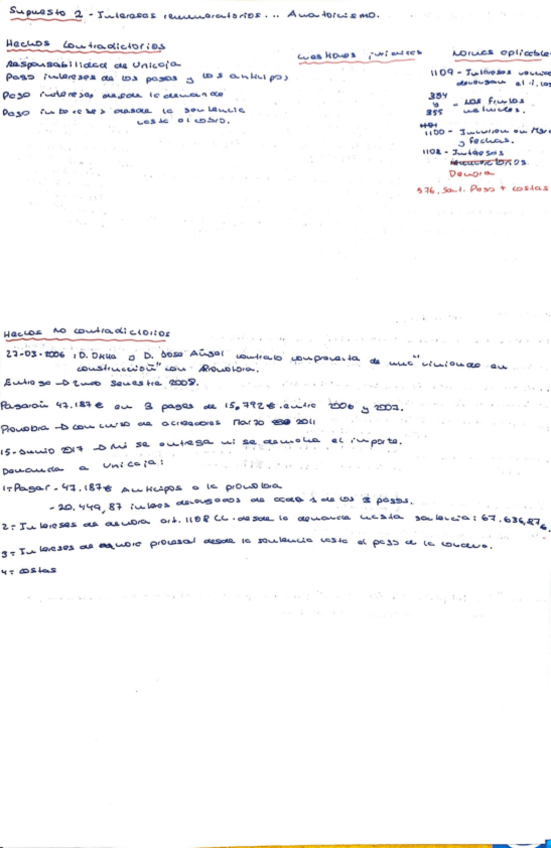 Supuesto 2 - Intereses remuneratorios... Anatocismo.
Hechos Contradictorios
Responsabilidad de Unicaja
Pago intereses de los pagos y los anticipos
Pago intereses desde la demanda
Pago intereses desde la sentencia
hasta el cobro.
Cuestiones jurídicas
Normas aplicable
1109 - Intereses
devengan el i. los
354
y - Los frutos
355 naturales.
1100 - Incursion en Mora
y fechas.
1108 - Intereses
Demora
576. Sent. Pago + costas
Hechos No contradictorios
27-03-2006, D. D. Jose Angel contrato compraventa de una "vivienda en
construccion" con Promobra.
Entrega -> 2undo semestre 2008.
Pagaron 47.187€ en 3 pagos de 15,792€ entre 2006 y 2007.
-> concurso de acreedores Marzo 2011
15-Junio 2017 -> Ni se entrega ni se el importe.
Demanda a Unicaja:
1= Pagar - 47.187€ Anticipos a la
- 20.449,87 interes devengados de cada 1 de los 3 pagos.
2= Intereses de demora art. 1108 CC. desde la demanda hasta sentencia: 67.636,87€.
3= Intereses de mora procesal desde la sentencia hasta el pago de la
4= costas